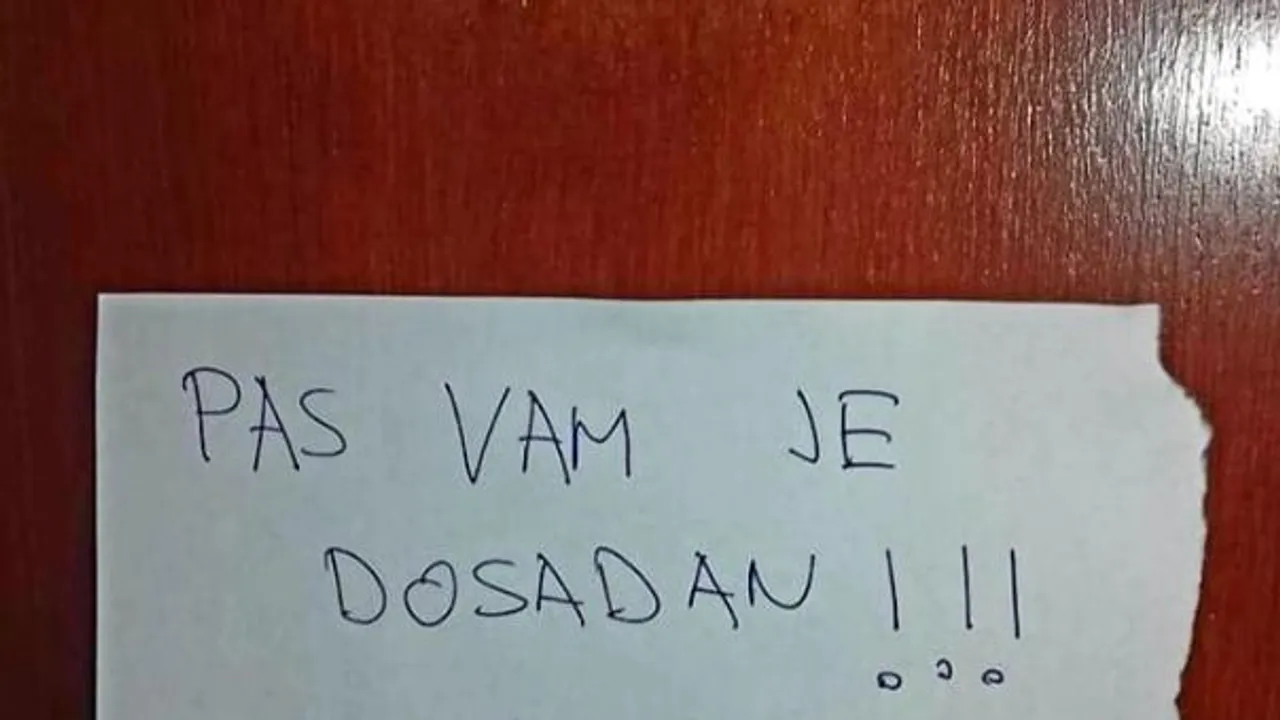 PAS VAM JE
DOSADAN!!!